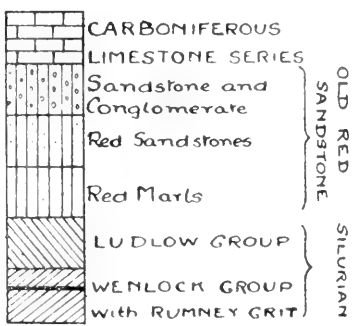 CARBONIFEROUS
LIMESTONE SERIES
Sandstone and
Conglomerate
Red Sandstones
Red Marls
OLD RED
SANDSTONE
LUDLOW GROUP
WENLOCK GROUP
with RUMNEY GRIT
SILURIAN